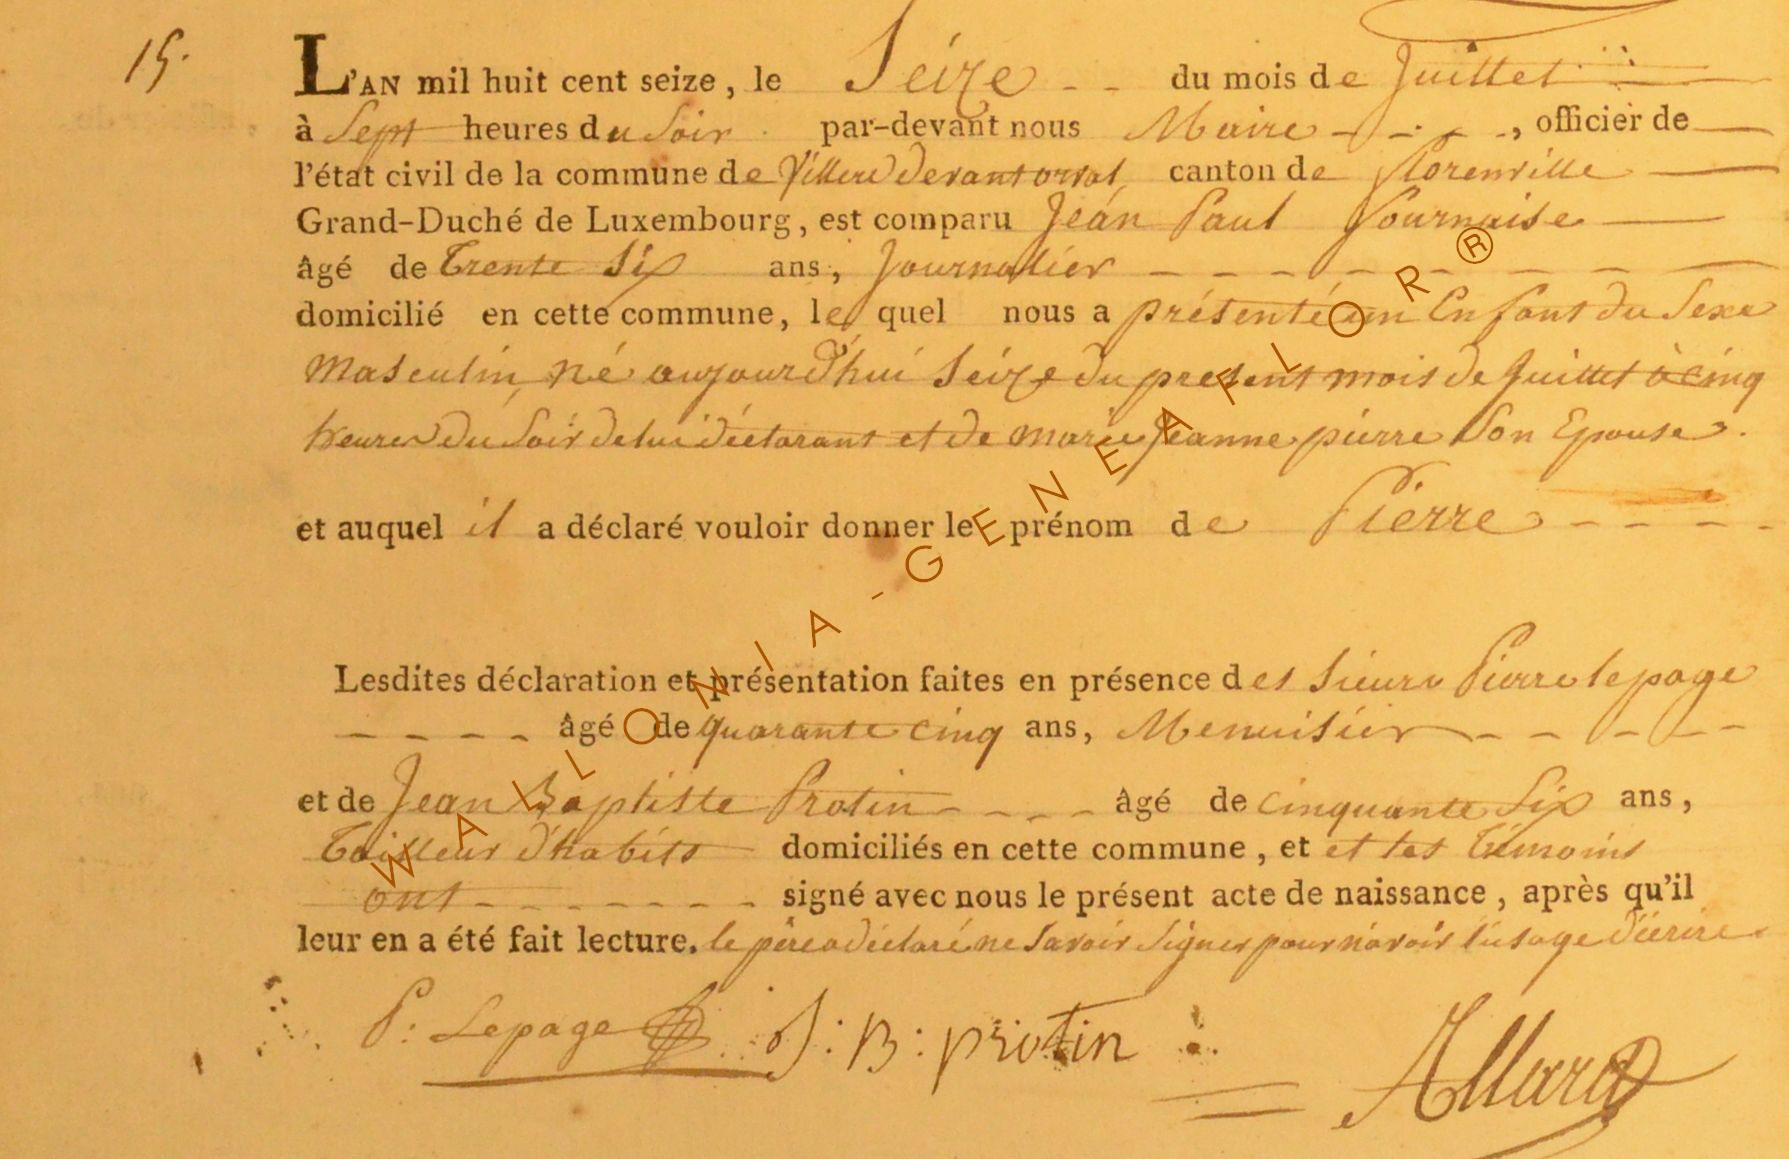 15.
L'AN mil huit cent seize, le Seize du mois de Juillet
à Sept heures du Soir par-devant nous Maire, officier de
l'état civil de la commune de Villers devant orval canton de florenville
Grand-Duché de Luxembourg, est comparu Jean Paul fournaise
âgé de Trente Six ans, Journalier
domicilié en cette commune, lequel nous a présenté un Enfant du Sexe
Masculin, né aujourd'hui Seize du present mois de Juillet à cinq
heures du Soir de lui déclarant et de marie Jeanne pierre Son Epouse.
et auquel il a déclaré vouloir donner le prénom de Pierre
Lesdites déclaration et présentation faites en présence des Sieurs Pierre lepage
âgé de quarante cinq ans, Menuisier
et de Jean Baptiste Protin âgé de cinquante Six ans,
Tailleur d'habits domiciliés en cette commune, et et les témoins
ont signé avec nous le présent acte de naissance, après qu'il
leur en a été fait lecture. le père a déclaré ne Savoir Signer pour n'avoir l'usage d'écrire
P: Lepage J: B: protin
Allard
WALLONIA-GENEAFLOR®